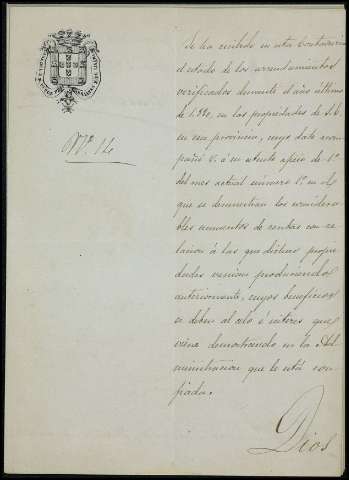 Nº 14
Se ha recibido en esta Contaduria
el estado de los arrendamientos
verificados durante el año último
de 1880, en las propiedades de S. E.
en esa provincia, cuyo dato acom-
pañó V. á su atento oficio de 1º
del mes actual número 1º en el
que se demuestran los considera-
bles aumentos de rentas con re-
lacion á las que dichas propie-
dades venian produciendo
anteriormente, cuyos beneficios
se deben al celo é interes que
viene demostrando en la Ad-
ministracion que le está con-
fiada.
Dios